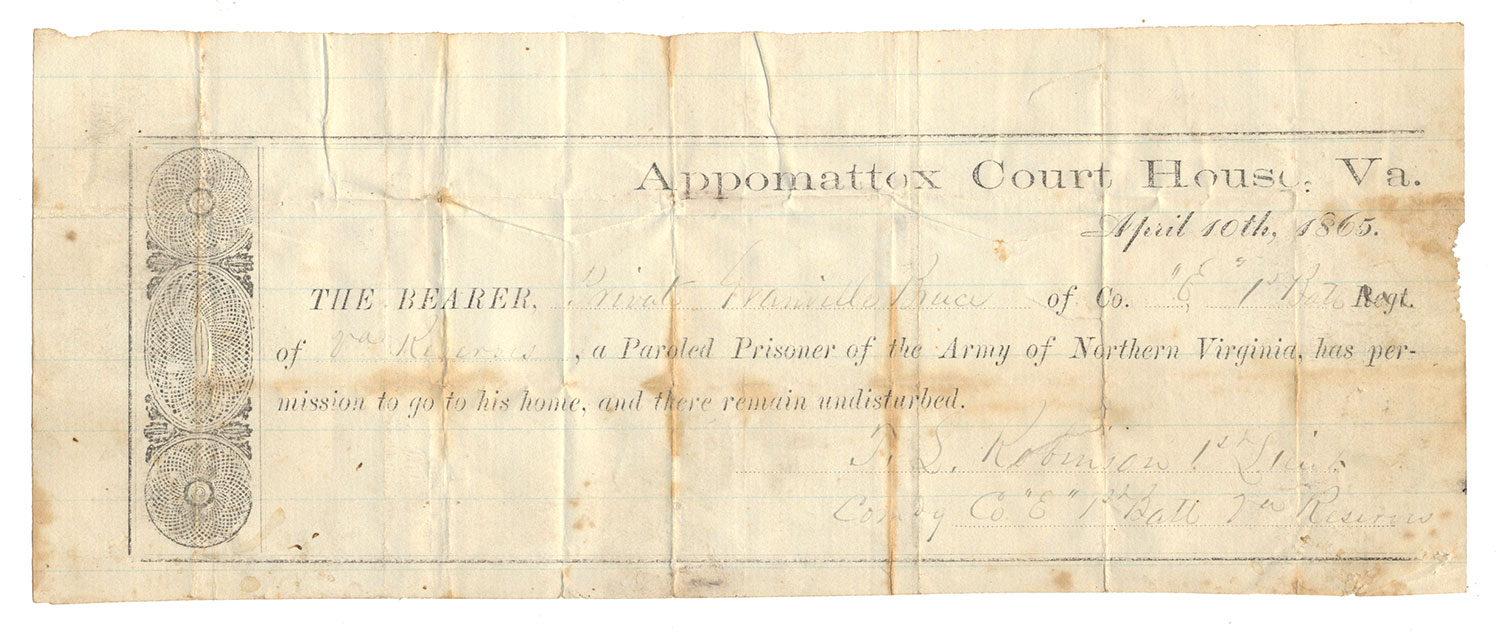 Appomattox Court House, Va.
April 10th, 1865.
THE BEARER, Private Granville Bruce of Co. "E" 1st Batt Regt.
of Va Reserves, a Paroled Prisoner of the Army of Northern Virginia, has per-
mission to go to his home, and there remain undisturbed.
T. S. Robinson 1st Lieut
Comdg Co "E" 1st Batt Va Reserves